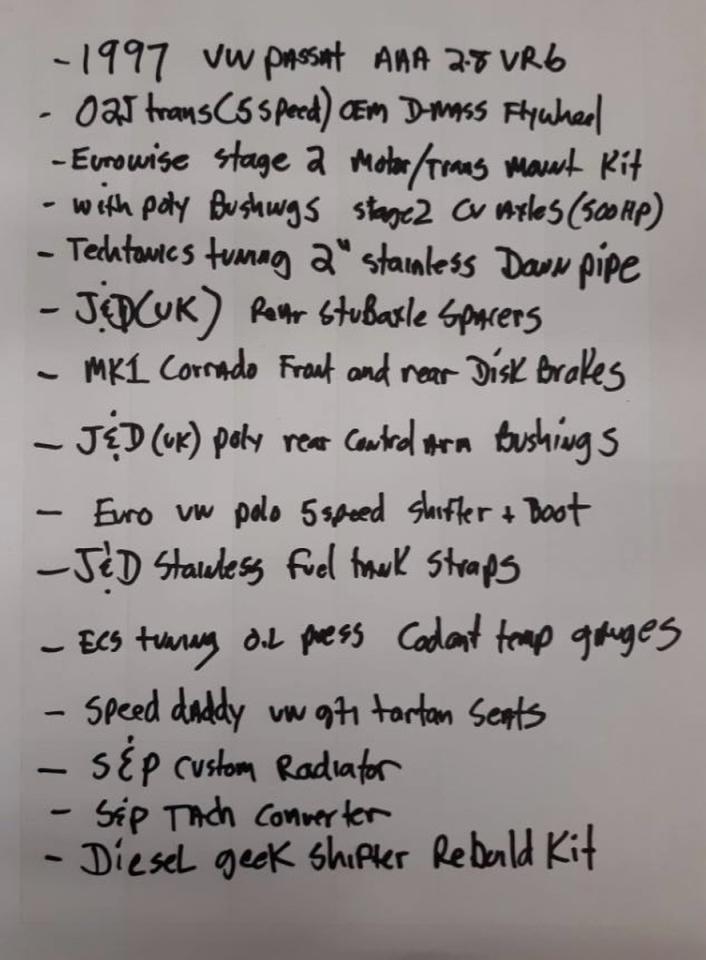 - 1997 VW PASSAt AAA 2.8 VR6
- 02J trans(5 speed) OEM D-MASS Flywheel
- Eurowise stage 2 Motor/Trans Mount Kit
- with poly Bushings stage2 CV Axles (500HP)
- Techtonics tuning 2" stainless Down pipe
- J&D(UK) Rear StuBaxle Spacers
- MK1 Corrado Front and rear Disk Brakes
- J&D (UK) poly rear Control Arm Bushings
- Euro VW polo 5 speed shifter + Boot
- J&D Stainless fuel tank straps
- ECS tuning oil press Coolant temp gauges
- Speed daddy VW gti tartan Seats
- S&P Custom Radiator
- S&P TAch Converter
- Diesel geek Shifter Rebuild Kit